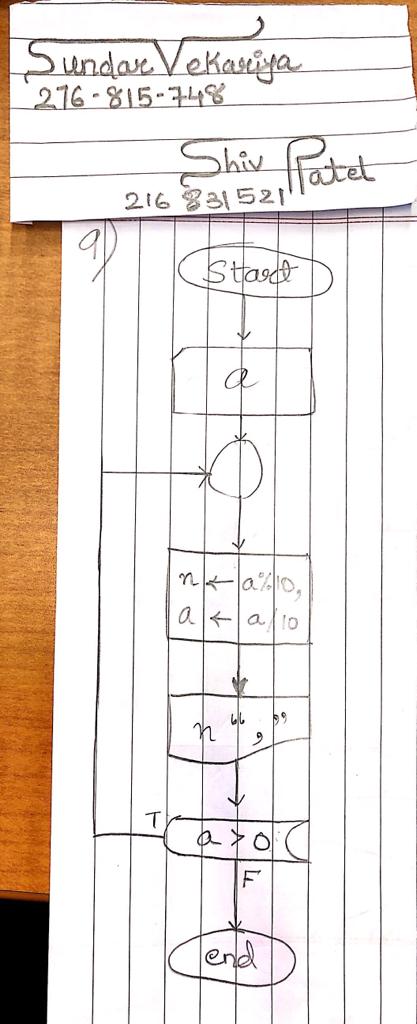 Sundar Vekariya
276-815-748
Shiv Patel
216 831521
9)
Start
a
n ← a%10,
a ← a/10
n “,”
T
a > 0
F
end